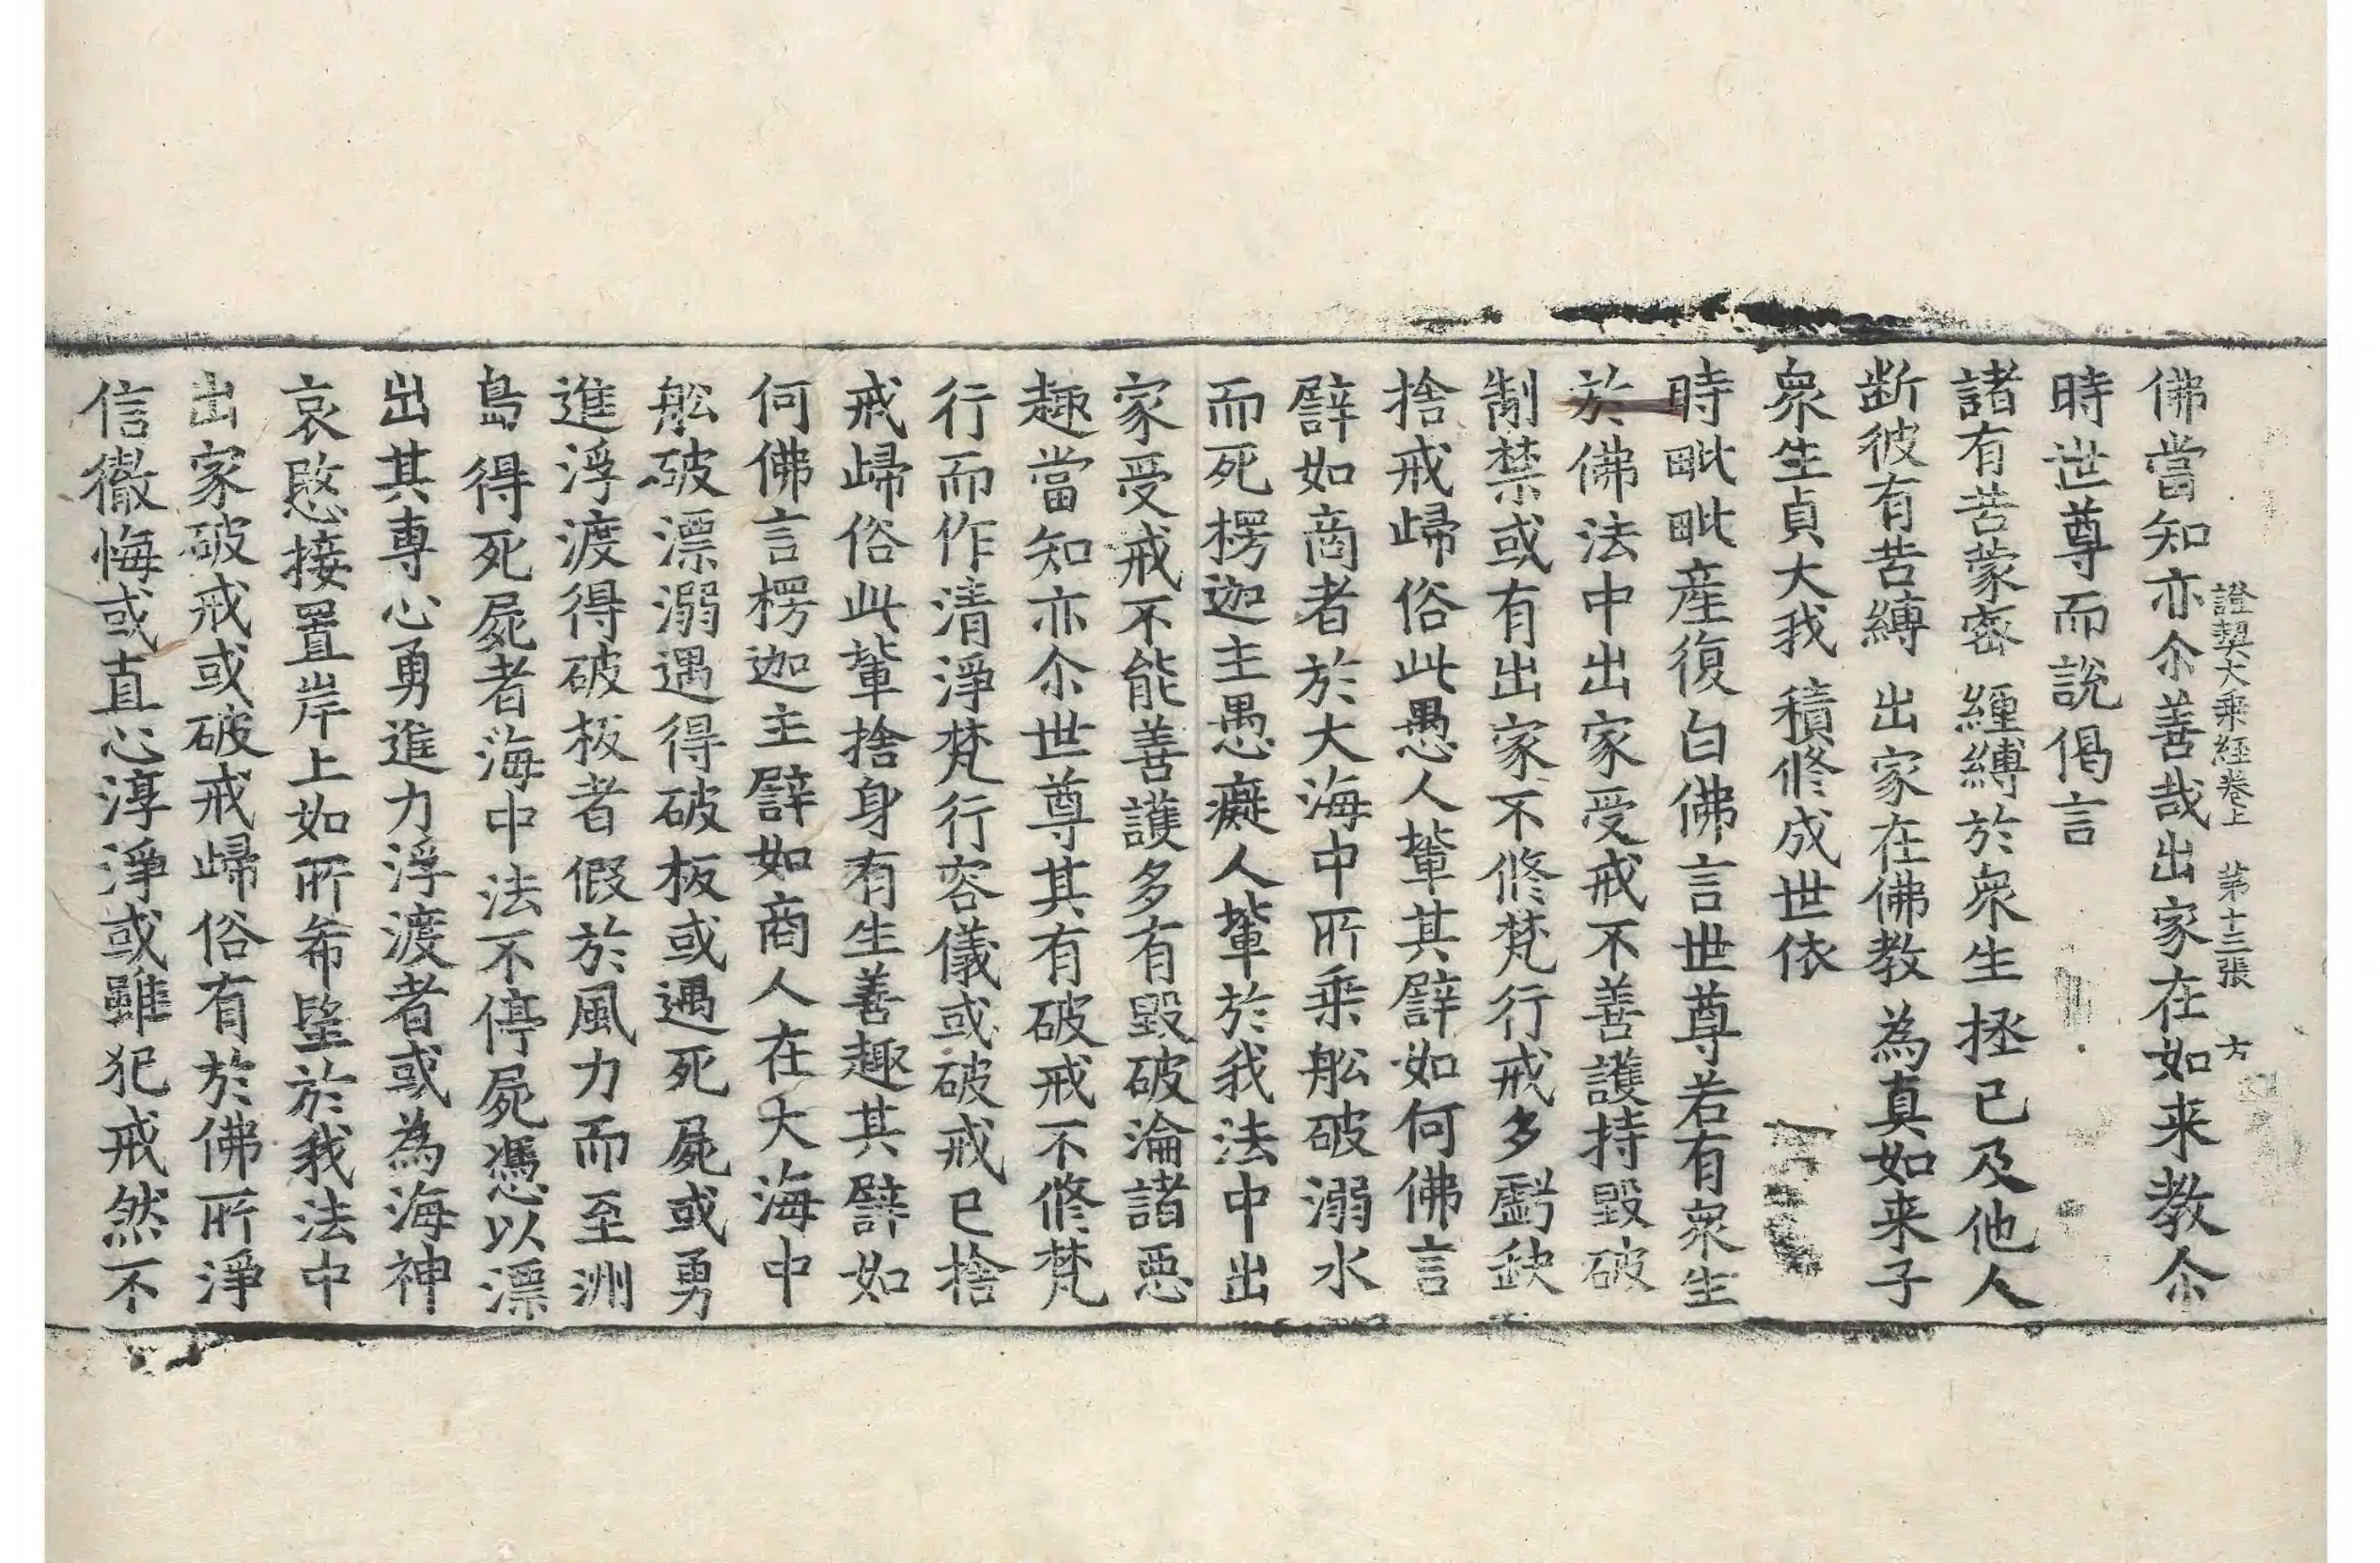 證契大乘經卷上　第十三張　方
佛當知亦尒善哉出家在如来教尒
時世尊而說偈言
諸有苦蒙密　纏縛於衆生　拯已及他人
斷彼有苦縛　出家在佛教　為真如来子
衆生貞大我　積修成世依
時毗毗產復白佛言世尊若有衆生
於佛法中出家受戒不善護持毀破
制禁或有出家不修梵行戒多虧缺
捨戒歸俗此愚人輩其譬如何佛言
譬如商者於大海中所乘舩破溺水
而死楞迦主愚癡人輩於我法中出
家受戒不能善護多有毀破淪諸惡
趣當知亦尒世尊其有破戒不修梵
行而作清淨梵行容儀或破戒已捨
戒歸俗此輩捨身有生善趣其譬如
何佛言楞迦主譬如商人在大海中
舩破漂溺遇得破板或遇死屍或勇
進浮渡得破板者假於風力而至洲
島得死屍者海中法不停屍憑以漂
出其專心勇進力浮渡者或為海神
哀愍接置岸上如所希望於我法中
出家破戒或破戒歸俗有於佛所淨
信徹悔或直心淳淨或雖犯戒然不